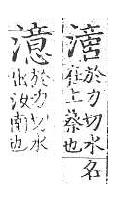 於力切水
名
在上蔡也
澺
於力切水
出汝南也